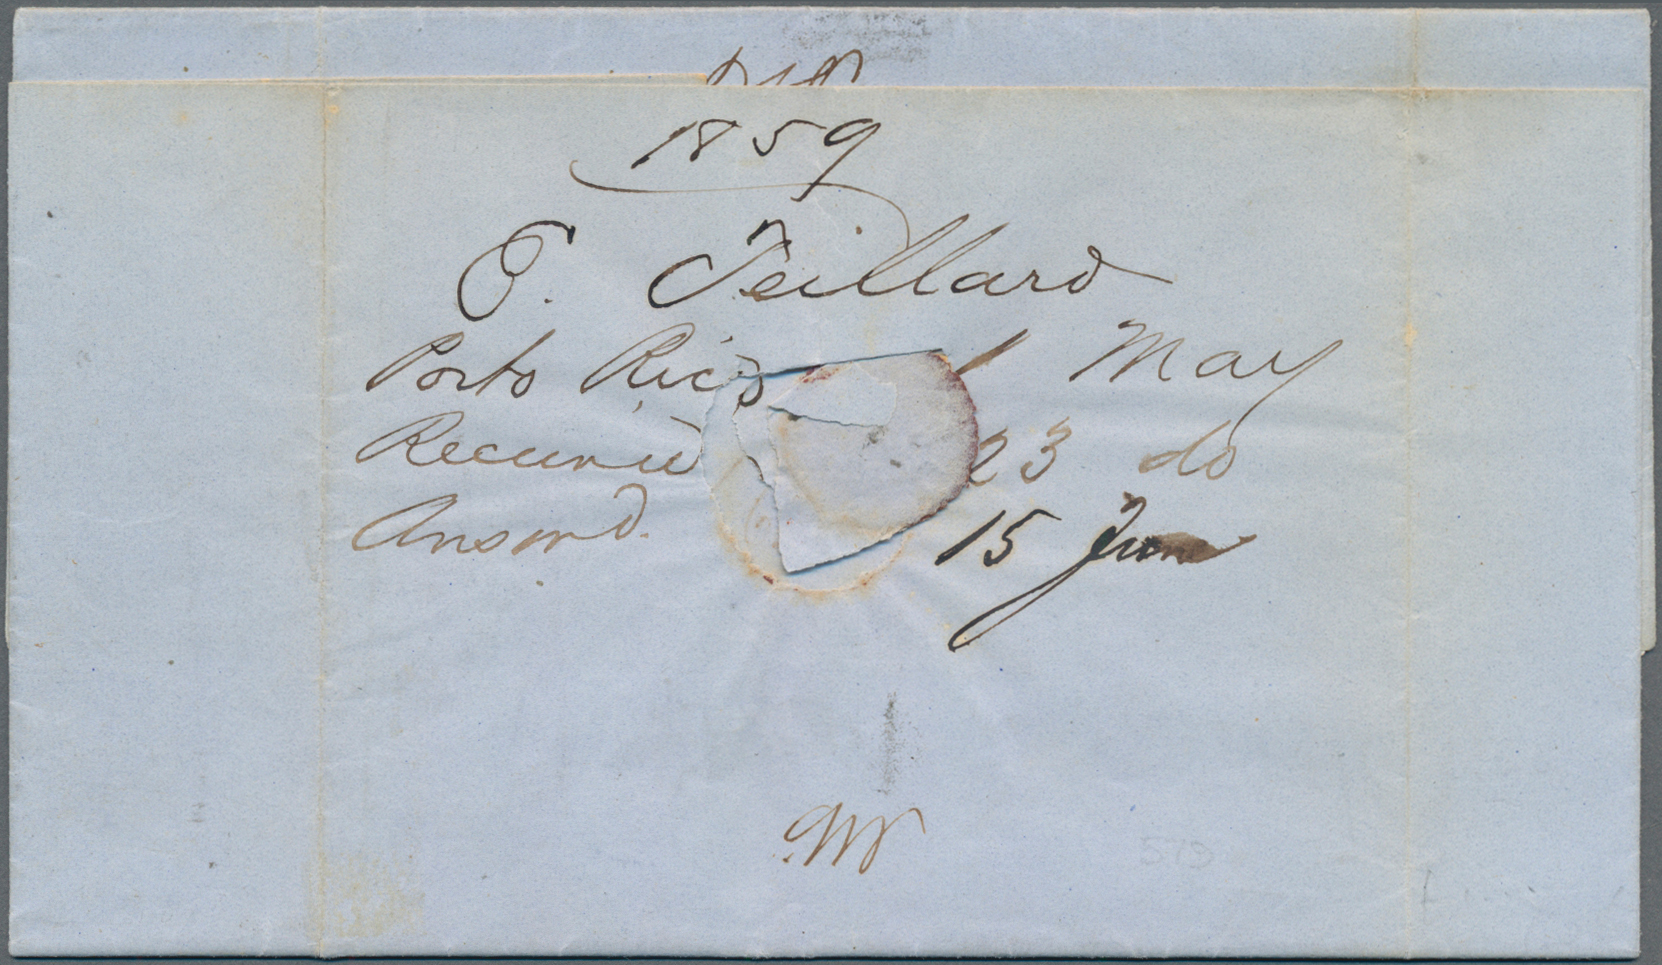 1859
Teillard
Porto Rico 1 May
Received 23 do
Answd. 15 June
573